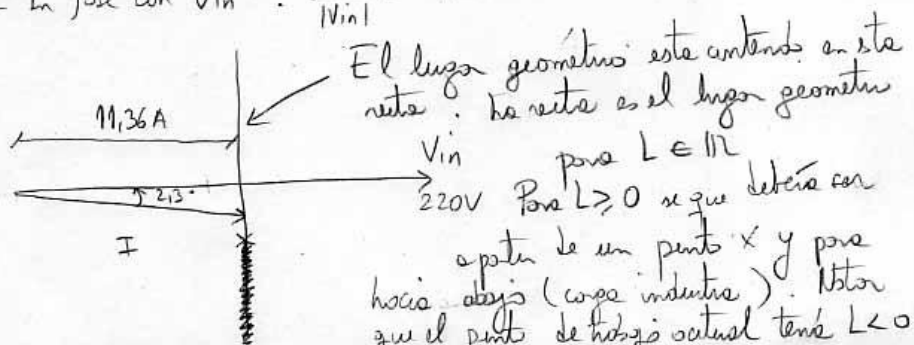 en fase con Vin
|Vin|
El lugar geométrico esta contenido en sta
recta. La recta es el lugar geometrico
para L ∈ ℝ
Para L ≥ 0 se que debería ser
a partir de un punto x y para
hacia abajo (carga inductiva). Notar
que el punto de trabajo actual tenía L<0
11,36 A
Vin
220V
2,3°
I